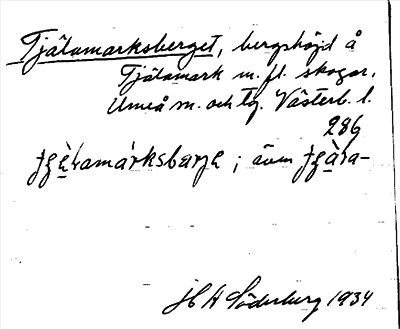 Tjälamarksberget, bergshöjd å
Tjälamark m. fl. skogar,
Umeå sn. och tg. Västerb. l.
286
även
H A Söderberg 1934